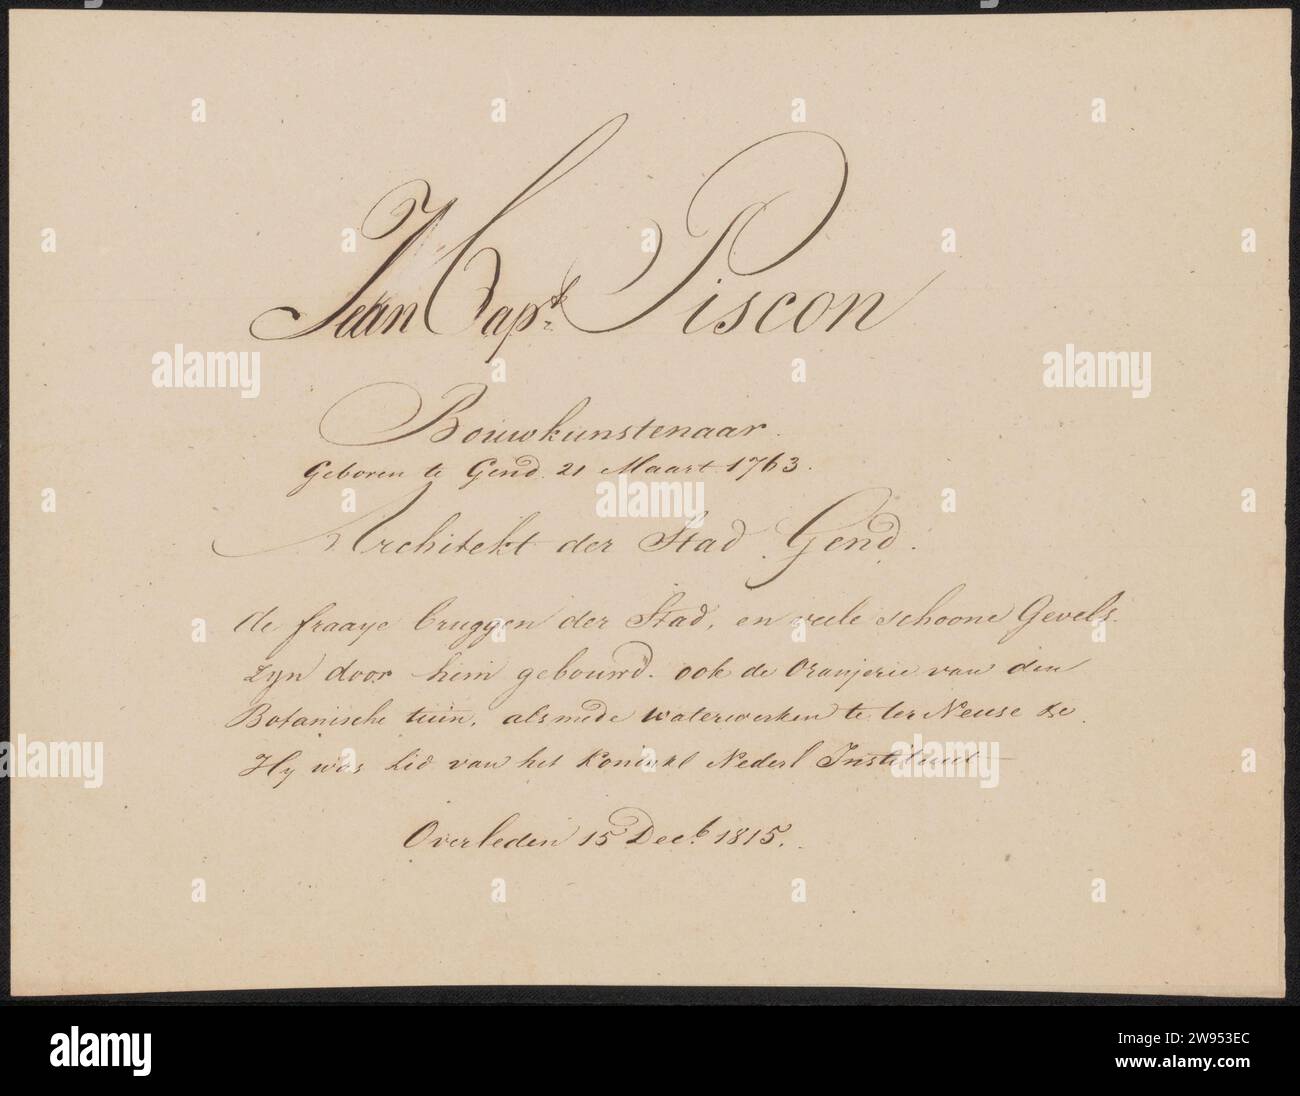 Jean Bapt. Piscon
Bouwkunstenaar.
Geboren te Gend 21 Maart 1763.
Architekt der Stad Gend.
de fraaye bruggen der Stad, en veele schoone Gevels
zyn door hem gebouwd. ook de Oranjerie van den
Botanische tuin, alsmede waterwerken te ter Neuse &c.
Hy was Lid van het Koninkl Nederl Instituut
Overleden 15 Decb. 1815.
alamy
alamy
Image ID: 2W953EC
www.alamy.com